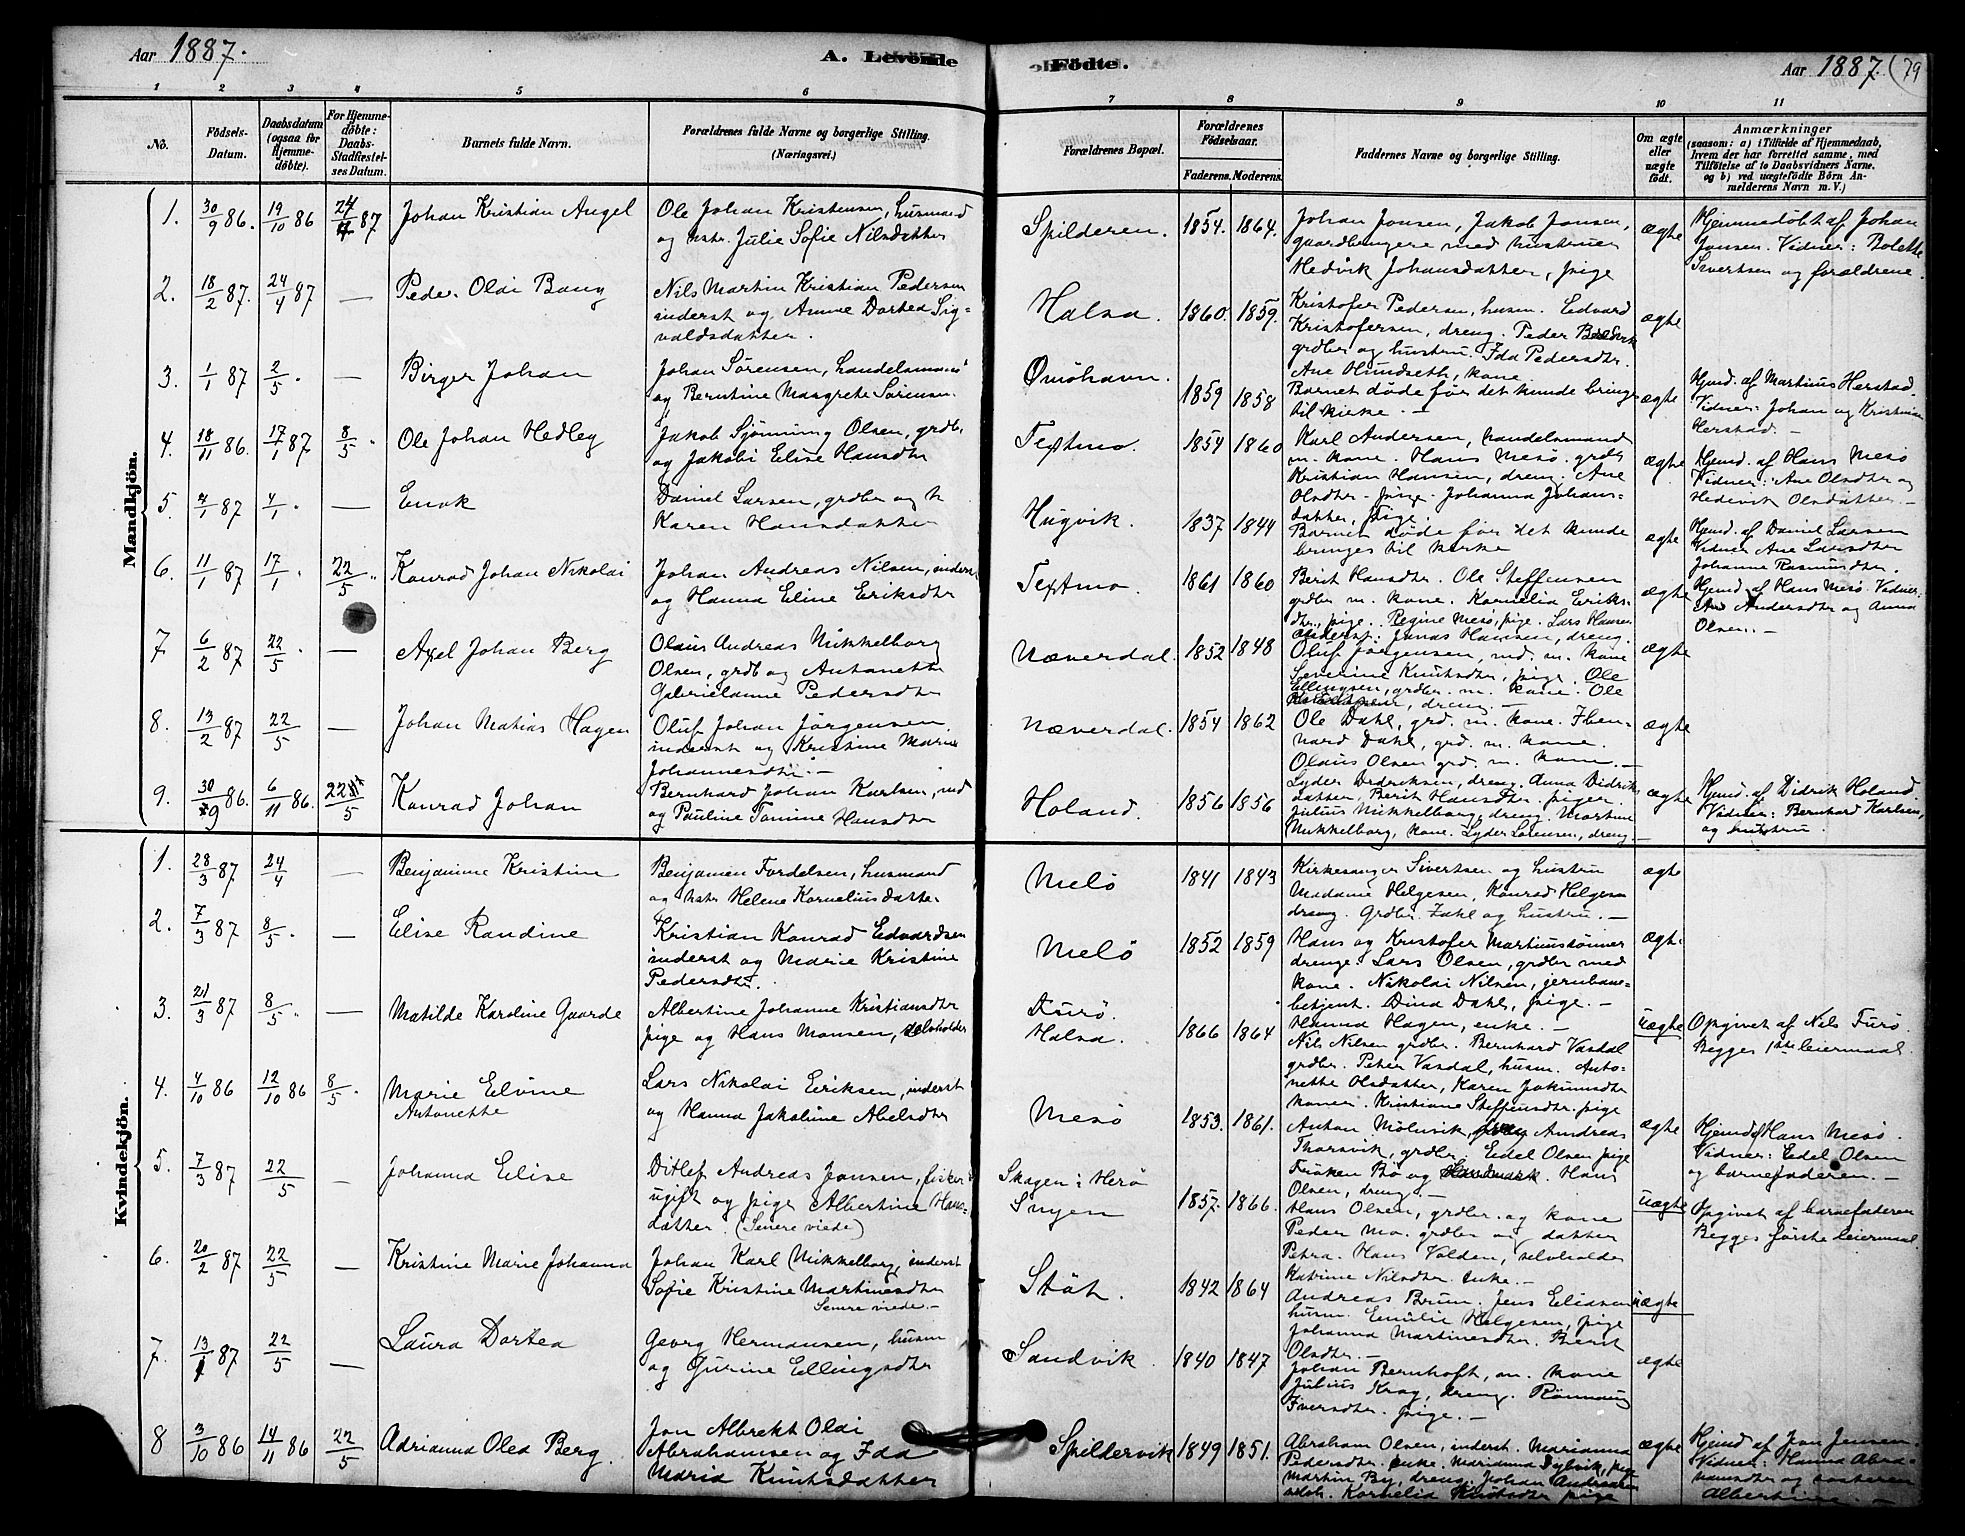 Aar 1887. A. Levende Födte. Aar 1887. (79
1 2 3 4 5 6 7 8 9 10 11
No. Födsels-Datum. Daabsdatum (ogsaa for Hjemmedöbte). For Hjemmedöbte: Daabs-Stadfæstelses Datum. Barnets fulde Navn. Forældrenes fulde Navne og borgerlige Stilling. (Næringsvei.) Forældrenes Bopæl. Forældrenes Födselsaar. Faderens. Moderens. Faddernes Navne og borgerlige Stilling. Om ægte eller uægte födt. Anmærkninger (saasom: a) i Tilfælde af Hjemmedaab, hvem der har forrettet samme, med Tilföielse af to Daabsvidners Navne, og b) ved uægtefödte Börn Anmelderens Navn m. V.)
Mandkjön.
1. 30/9 86. 19/10 86 87 Johan Kristian Angel
Ole Johan Kristensen, husmand
og hstr. Julie Sofie Nilsdatter
Spilderen. 1854. 1864.
Johan Jonsen, Jakob Jonsen,
gaardbrugere med hustruer
Hedvik Johansdatter, pige
ægte
Hjemmedöbt af Johan
Jonsen. Vidner: Bolette
Sivertsen og forældrene.
2. 18/2 87. 24/4 87 — Peder Olai Bang
Nils Martin Kristian Pedersen
inderst og Anne Dortea Sig-
valdsdatter.
Halsa. 1860. 1859.
Kristofer Pedersen, husm. Edvard
Kristofersen, dreng. Peder
grdbr og hustru. Ida Pedersdtr.
Ane Hundseth, kone
ægte
3. 1/1 87 2/5. — Birger Johan
Johan Sörensen, handelsmand
og Berntine Margrete Sörensen.
Önöhavn. 1859 1858
Barnet döde för det kunde bringes
til kirke. —
ægte
Hjmd. af Martinus Herstad.
Vidner: Johan og Kristine
Herstad. —
4. 18/11 86. 17/1 87 8/5. Ole Johan Hedley
Jakob Sjönning Olsen, grdb.
og Jakobi Elise Hansdtr
Textmo. 1854 1860
Karl Andersen, handelsmand
m. kone. Hans Mesö. grdb
Kristian Hansen, dreng. Ane
Olsdtr. pige. Johanna Johans-
datter, pige.
ægte
Hjmd. af Hans Mesö
Vidner: Ane Olsdtr og
Hedevik Olsdatter. —
5. 87 — Enok
Daniel Larsen, grdbr og h
Karen Hansdatter
Hugvik. 1837 1844
Barnet döde för det kunde
bringes til kirke
ægte
Hjmd. af Daniel Larsen
Vidner Ane Larsdtr
Johanna Rasmusdtr.
6. 11/1 87 17/1. 22/5. Konrad Johan Nikolai
Johan Andreas Nilsen, inders
og Hanna Eline Eriksdtr
Textmo. 1861 1860
Berit Hansdtr. Ole Steffensen
grdbr m. kone. Kornelia Eriks-
dtr, pige. Regine Mesö, pige. Lars Hansen
inderst. Jonas Hansen, dreng.
ægte
Hjmd. af Hans Mesö. Vidner:
Andersdtr og Anna
Olsen. —
7. 6/2 87 22/5 — Axel Johan Berg
Olaus Andreas Mikkelborg
Olsen, grdb og Antonette
Gabrielanne Pedersdtr
Næverdal. 1852 1848
Oluf Jörgensen, ind. m. kone
Severine Knutsdtr, pige. Ole
Ellingsen, grdbr. m. kone. Ole
dreng. —
ægte
8. 13/2 87 22/5 — Johan Matias Hagen
Oluf Johan Jörgensen
inderst og Kristine Marie
Johannesdtr. —
Næverdal. 1854 1862
Ole Dahl, grd. m. kone.
Dahl, grd. m. kone.
Olaus Olsen grd. m. kone. —
ægte
9. 30/9 86. 6/11 86. 22/5 Konrad Johan
Bernhard Johan Karlsen, ind
og Pauline Tomine Hansdtr
Holand. 1856 1856
Lyder Dideriksen, dreng. Anna Didriks
datter, Berit Hansdtr. piger.
Julius Mikkelborg, dreng. Martine
Mikkelborg, kone. Lyder Sörensen, dreng. —
ægte
Hjmd. af Didrik Holand
Vidner: Bernhard Karlsen,
og hustru.
Kvindekjön.
1. 28/3 87 24/4 — Benjamine Kristine
Benjamen Fordelsen, husmand
og hstr Helene Korneliusdatter
Melö 1841 1843
Kirkesanger Sivertsen og hustru
Madame Helgesen, Konrad Helgesen
dreng. Grdbr. Zahl og hustru. —
ægte
2. 7/3 87 8/5. — Elise Randine
Kristian Konrad Edvardsen
inderst og Marie Kristine
Pedersdtr.
Melö 1852 1859
Hans og Kristofer Martinusönner
drenge. Lars Olsen, grdbr med
kone. Nikolai Nilsen, jernbane-
betjent. Dina Dahl, pige. —
Hanna Hagen, enke. —
ægte
3. 21/3 87 8/5. — Matilde Karoline Gaarde
Albertine Johanne Kristiansdtr
pige og Hans Monsen, selvholder
Furö.
Halsa. 1866 1864
Nils Nilsen grdbr. Bernhard Vasdal
grdbr. Peter Vasdal, husm. Anto-
nette Olsdatter, Karen Jokumsdtr
koner. Kristiane Steffensdtr. pige
uægte
Opgivet af Nils Furö.
Begges 1ste leiermaal.
4. 4/10 86 12/10 86 8/5. Marie Elvine
Antonette
Lars Nikolai Eriksen, inderst
og Hanna Jakobine Abelsdtr
Mesö 1853. 1861.
Anton Molnvik, Andreas
Thorsvik, grdbr. Edel Olsen pige
Fröken Bö og Hans
Olsen, dreng. —
ægte
Hjemd. Hans Mesö.
Vidner: Edel Olsen
og barnefaderen. —
5. 7/3 87 22/5 — Johanna Elise
Ditlef Andreas Jonsen, fisker
ugift og pige Albertine Hans-
datter. (Senere viede)
Skagen i Herö
1857. 1866.
Hans Olsen, grdbr. og kone
Peder Mo. grdbr og datter
Petra. Hans Valden, selvholder
Katrine Nilsdtr. enke. —
uægte
Opgivet af barnefaderen
Begges förste leiermaal.
6. 20/2 87 22/5 — Kristine Marie Johanna
Johan Karl Mikkelborg, inderst
Sofie Kristine Martinesdtr
Senere viede. —
Stöt. 1842 1864
Andreas Brun. Jens Eliasen
husm. Emilie Helgesen, pige
Johanna Martinesdtr. Berit
Olsdtr. —
uægte
7. 13/1 87 22/5 — Laura Dortea
Georg Hermansen, husm
og Gurine Ellingsdtr
Sandvik. 1840 1847
Johan Bernhoft, m. kone
Julius Krag, dreng. Rönnaug
Iversdtr. pige. —
ægte
8 3/10 86 14/11 86 22/5 Adrianna Olea Berg.
Jon Albrekt Olai
Abrahamsen og Ida
Maria Knutsdatter
Spildervik 1849 1851.
Abraham Olsen, inderst. Marianna
Pedersdtr. enke. Dylvik, pige
Martin By, dreng. Johan Andreasen
selvh. Kornelia Knutsdtr pige
ægte
Hjmd af Jon Jensen.
Vidner: Hanna Abra-
hamsdtr og
Albertine. —